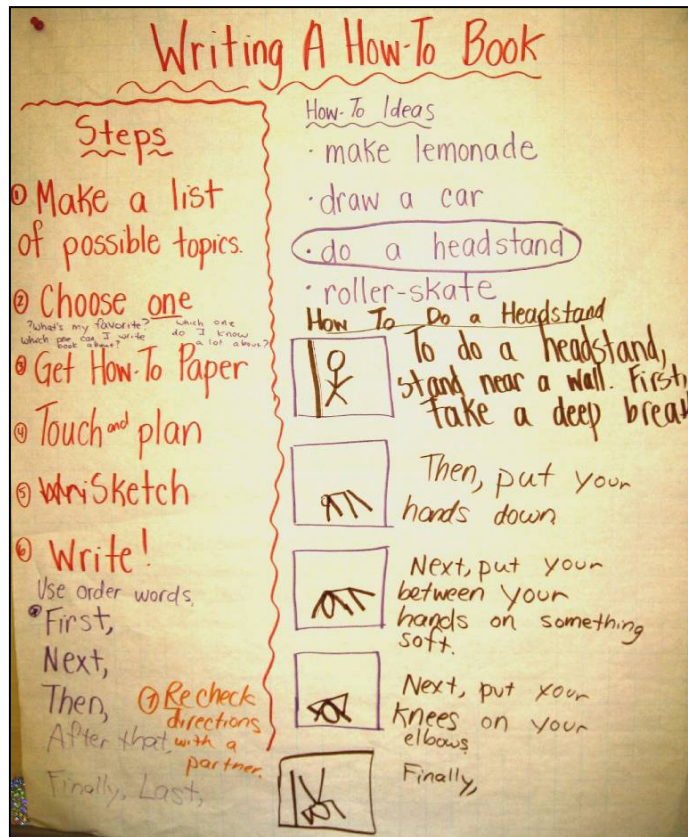 Writing A How-To Book
Steps
① Make a list
of possible topics.
② Choose one
?What's my favorite?
which one can I write
book about?
which one
do I know
a lot about?
③ Get How-To Paper
④ Touch and plan
⑤ Sketch
⑥ Write!
Use order words,
First,
Next,
Then,
After that,
Finally, Last,
⑦ Recheck
directions
with a
partner.
How-To Ideas
· make lemonade
· draw a car
· do a headstand
· roller-skate
How To Do a Headstand
To do a headstand,
stand near a wall. First,
take a deep breat
Then, put your
hands down
Next, put your
between your
hands on something
soft.
Next, put your
knees on your
elbows
Finally,